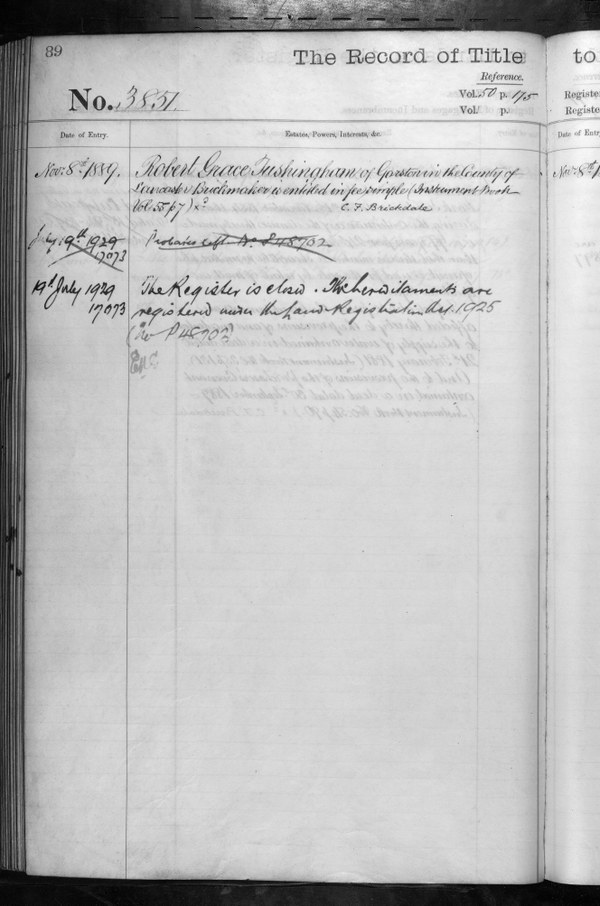 89
The Record of Title
Reference.
No. 3851.
Vol. 50 p. 175
Vol. p.
Date of Entry. Estates, Powers, Interests, &c.
Nov: 8th 1889. Robert Grace Tushingham of Garston in the County of
Lancaster Brickmaker is entitled in fee simple (Instrument Book
Vol 55 p 7)
C. F. Brickdale
July 19th 1929
17073
No P 48702
19th July 1929 The Register is closed. The hereditaments are
17073 registered under the Land Registration Act. 1925
(No P 48702)
to
Registe
Registe
Date of Entr
Nov: 8th 1